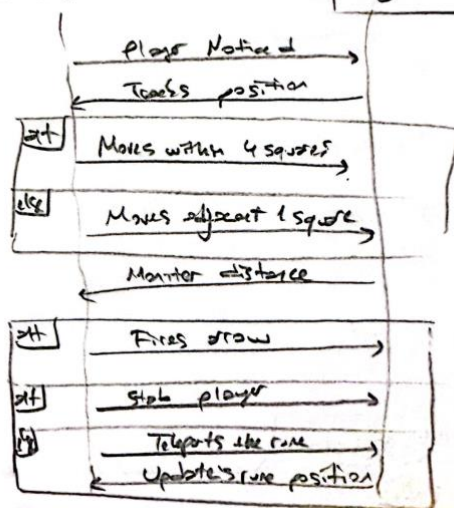 Player Noticed
Tracks position
alt
Moves within 4 squares
else
Moves adjacent 1 square
Monitor distance
alt
Fires arrow
alt
stab player
Teleports the rune
Update's rune position